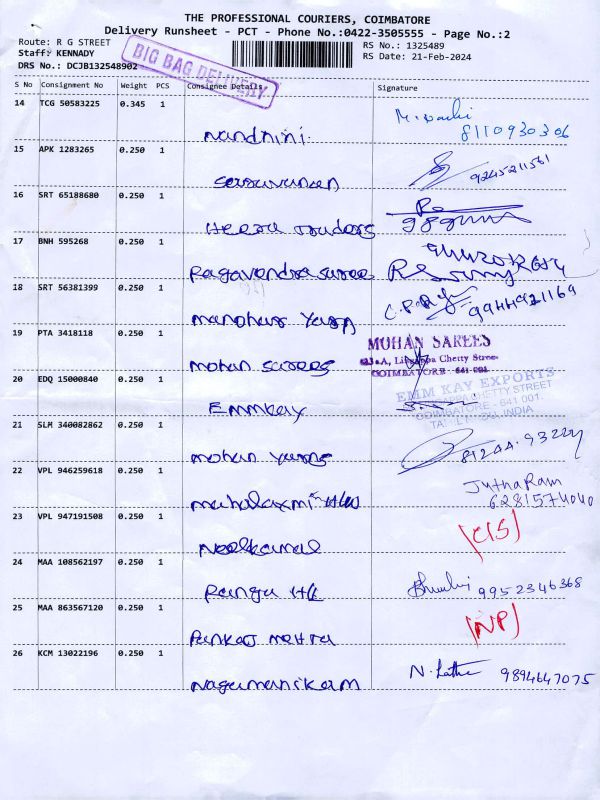 THE PROFESSIONAL COURIERS, COIMBATORE
Delivery Runsheet - PCT - Phone No.:0422-3505555 - Page No.:2
Route: R G STREET
RS No.: 1325489
Staff: KENNADY
RS Date: 21-Feb-2024
DRS No.: DCJB132548902
BIG BAG DELIVERY
S No Consignment No Weight PCS Consignee Details Signature
14 TCG 50583225 0.345 1
Nandhini
8110930306
15 APK 1283265 0.250 1
Saravanan
9245211561
16 SRT 65188680 0.250 1
Heera Traders
17 BNH 595268 0.250 1
Ragavendra sarees
18 SRT 56381399 0.250 1
manohar yarn
9944921169
19 PTA 3418118 0.250 1
mohan sarees
MOHAN SAREES
Chetty Street
COIMBATORE - 641 001.
20 EDQ 15000840 0.250 1
Emmkay
EMM KAY EXPORTS
CHETTY STREET
COIMBATORE - 641 001.
TAMILNADU, INDIA
21 SLM 340082862 0.250 1
mohan yarns
22 VPL 946259618 0.250 1
mahalaxmi H/W
JuthaRam
6281574040
23 VPL 947191508 0.250 1
Neelkamal
(C/S)
24 MAA 108562197 0.250 1
Ranga
9952346368
25 MAA 863567120 0.250 1
Pankaj mehra
(NP)
26 KCM 13022196 0.250 1
Nagamanikam
N. Latha 9894647075